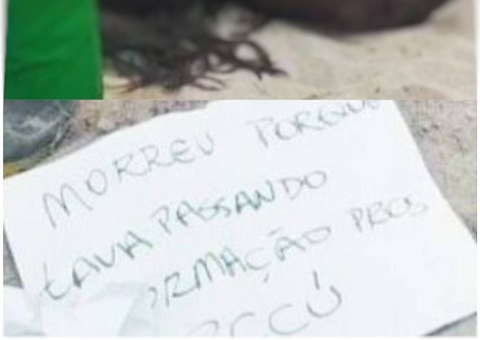 MORREU PORQUE
TAVA PASSANDO
ORMAÇÃO PROS